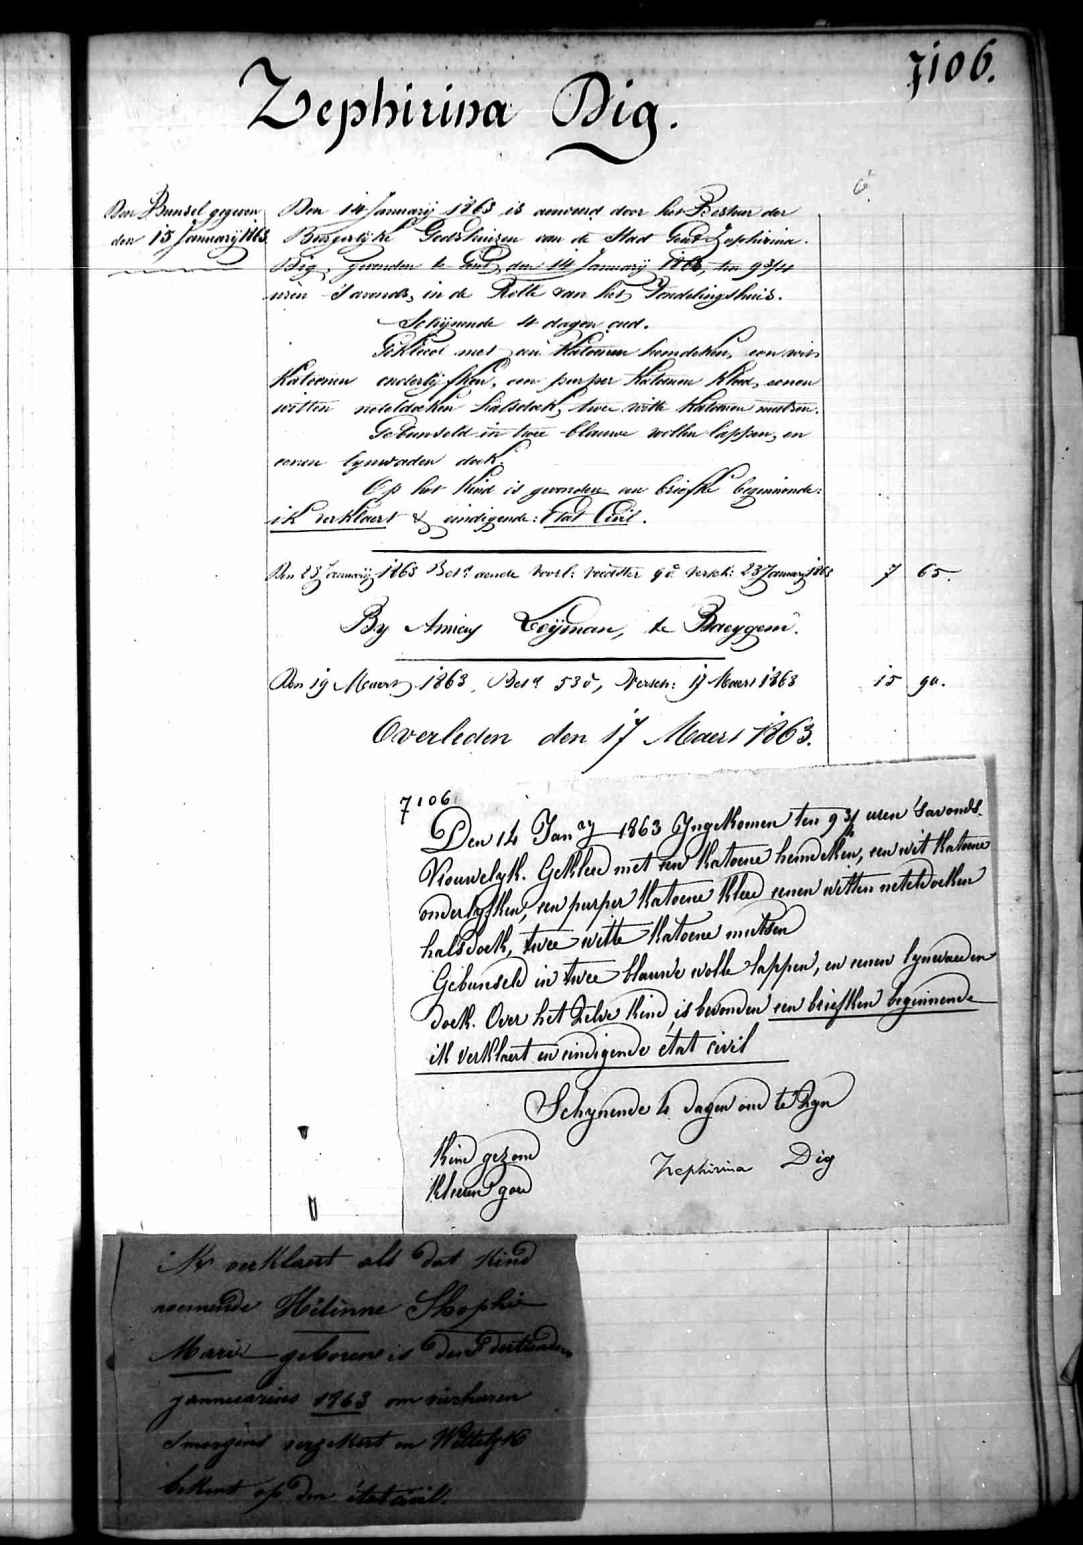 7106.
Zephirina Dig.
Den Bunsel gegeven
den 15 Januarij 1863.
Den 14 Januarij 1863 is aenveird door het Bestuer der
Burgerlijke Godshuizen van de Stad Gent Zephirina
Dig, gevonden te Gent, den 14 Januarij 1863, ten 9 3/4
uren 'Savonds, in de Rolle van het Vondelingshuis.
Schijnende 4 dagen oud.
Gekleed met een Katoenen hemdeken, een wit
Katoenen onderlijfken, een purper Katoenen Kleed, eenen
witten neteldoeken halsdoek, twee witte Katoenen mutsen.
Gebunseld in twee blauwe wollen lappen, en
eenen lynwaden doek.
Op het Kind is gevonden een briefke beginnende:
ik verklaert & eindigende: Etat Civil.
Den 23 Januarij 1863 Bet.d aende 9d versch: 23 January 1863 7 65.
By Amicus Leijman, te Baeygem.
Den 19 Maert 1863, Bet.d 53d, Versch: 17 Maert 1863 15 90.
Overleden den 17 Maert 1863.
7106
Den 14 Jan.ry 1863 Ingekomen ten 9 3/4 uren 'Savonds.
Vrouwelyk. Gekleed met een Katoene hemdeken, een wit Katoene
onderlyfken, een purper Katoene kleed eenen witten neteldoeken
halsdoek, twee witte Katoene mutsen
Gebunseld in twee blauwe wolle lappen, en eenen lynwaeden
doek. Over het Zelve Kind is bevonden een briefken beginnende
ik verklaert en eindigende état civil
Schynende 4 dagen oud te Zyn
Kind gezond
Zephirina Dig
Kleeren goed
ik verklaert als dat Kind
noemende Hélènne Shophie
Marie geboren is den dertienden
jannuarius 1863 om
Smorgens en Wettelyk
bekent op den état civil.